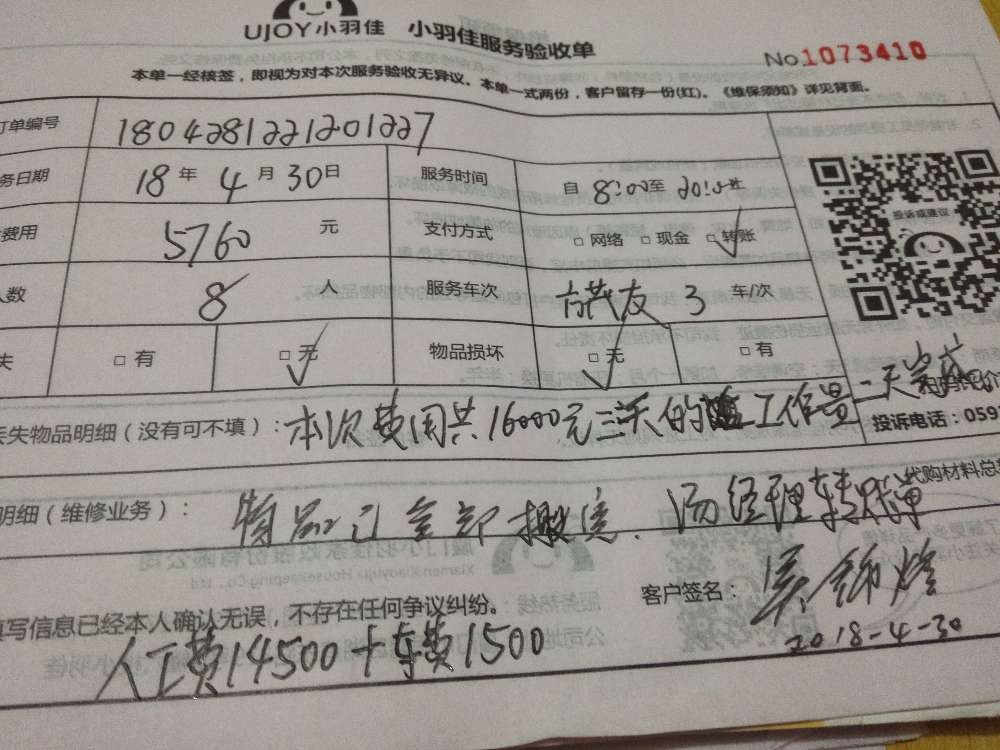 UJOY小羽佳 小羽佳服务验收单
No1073410
本单一经核签，即视为对本次服务验收无异议。本单一式两份，客户留存一份(红)。《维保须知》详见背面。
订单编号 1804281221201227
务日期 18年4月30日 服务时间 自8:00至
费用 5760元 支付方式 □网络 □现金 □转账
人数 8人 服务车次 3车/次
失 □有 □无 物品损坏 □无 □有
投诉或建议
丢失物品明细（没有可不填）：本次费用共16000元三天的工作量二天完成
投诉电话：059
明细（维修业务）：物品已全部搬完、汤经理转账
代购材料总
填写信息已经本人确认无误，不存在任何争议纠纷。
客户签名：
2018-4-30
人工费14500+车费1500